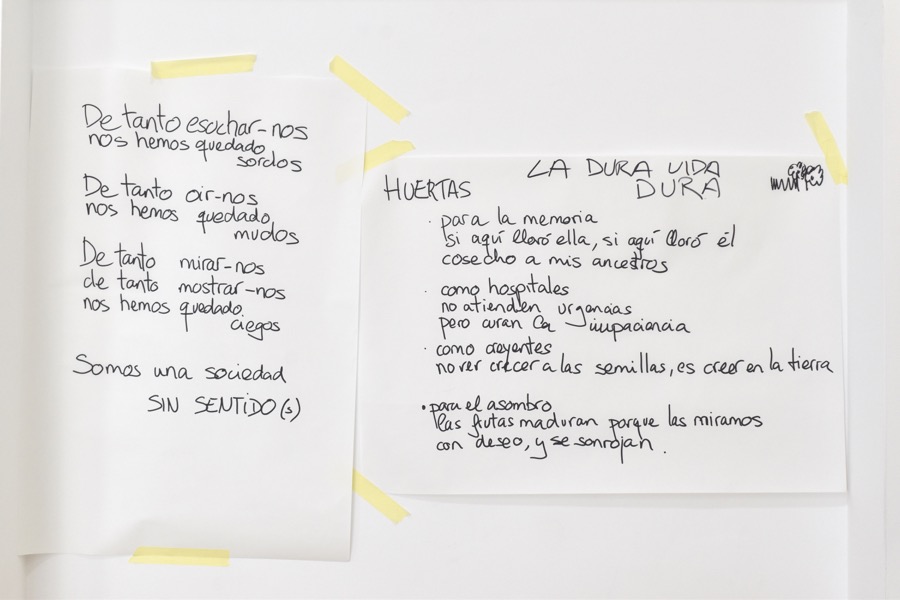 De tanto escuchar-nos
nos hemos quedado
sordos
De tanto oir-nos
nos hemos quedado
mudos
De tanto mirar-nos
de tanto mostrar-nos
nos hemos quedado
ciegos
Somos una sociedad
SIN SENTIDO(s)
LA DURA VIDA
DURA
HUERTAS
· para la memoria
si aquí lloró ella, si aquí lloró él
cosecho a mis ancestros
· como hospitales
no atienden urgencias
pero curan la impaciencia
· como creyentes
no ver crecer a las semillas, es creer en la tierra
· para el asombro
las frutas maduran porque las miramos
con deseo, y se sonrojan.